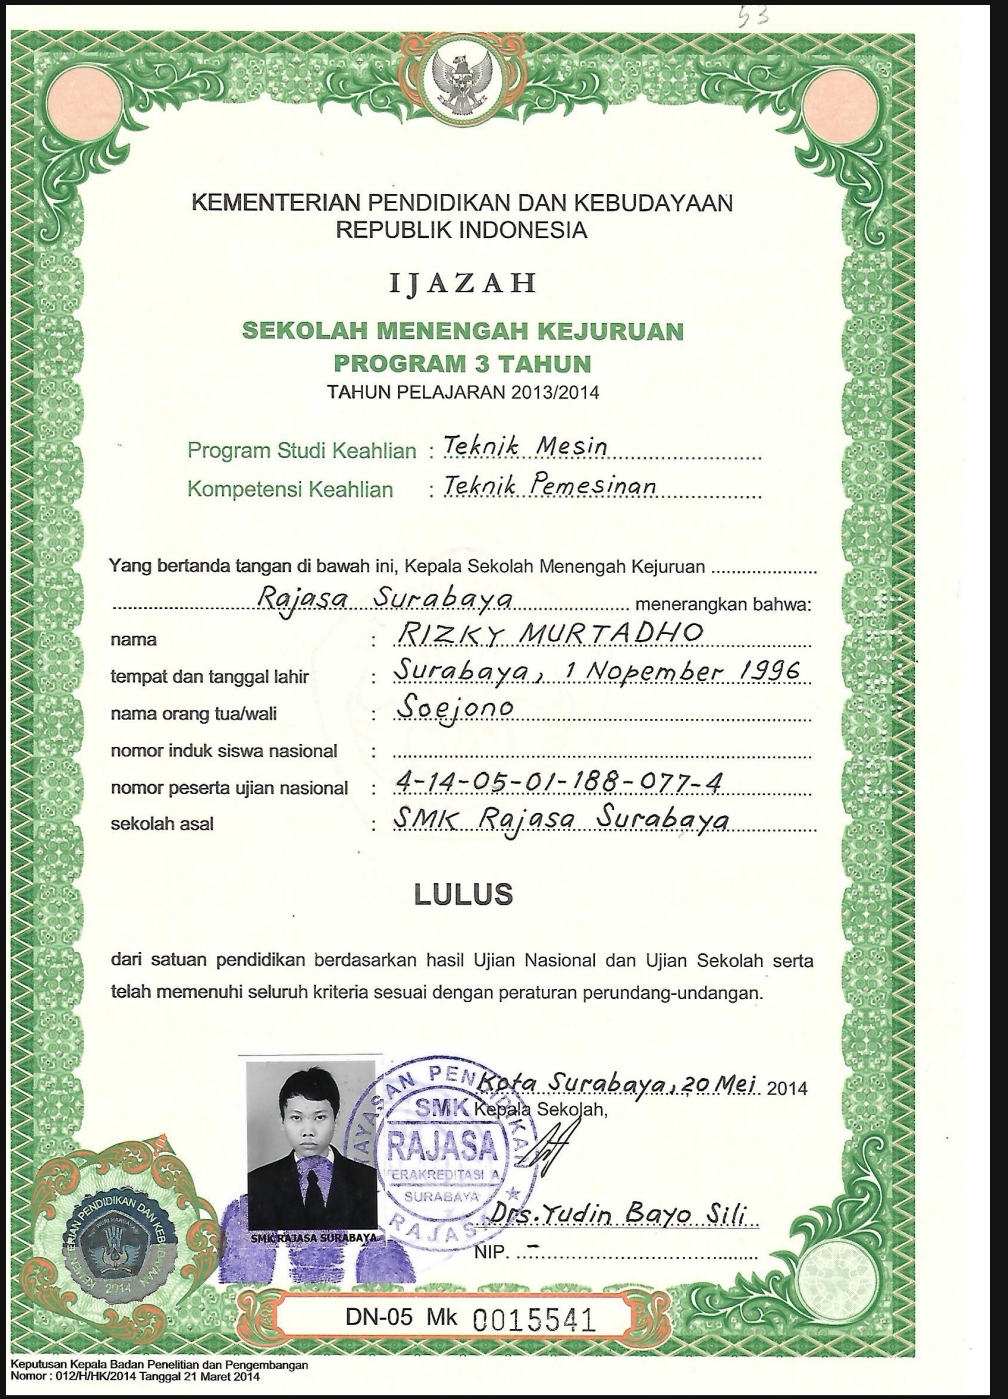 53
KEMENTERIAN PENDIDIKAN DAN KEBUDAYAAN
REPUBLIK INDONESIA
IJAZAH
SEKOLAH MENENGAH KEJURUAN
PROGRAM 3 TAHUN
TAHUN PELAJARAN 2013/2014
Program Studi Keahlian : Teknik Mesin
Kompetensi Keahlian : Teknik Pemesinan
Yang bertanda tangan di bawah ini, Kepala Sekolah Menengah Kejuruan
Rajasa Surabaya menerangkan bahwa:
nama : RIZKY MURTADHO
tempat dan tanggal lahir : Surabaya, 1 Nopember 1996
nama orang tua/wali : Soejono
nomor induk siswa nasional :
nomor peserta ujian nasional : 4-14-05-01-188-077-4
sekolah asal : SMK Rajasa Surabaya
LULUS
dari satuan pendidikan berdasarkan hasil Ujian Nasional dan Ujian Sekolah serta
telah memenuhi seluruh kriteria sesuai dengan peraturan perundang-undangan.
Kota Surabaya, 20 Mei 2014
Kepala Sekolah,
YAYASAN PENDIDIKAN
SMK
RAJASA
TERAKREDITASI A
SURABAYA
RAJASA
Drs. Yudin Bayo Sili
NIP. -
SMK RAJASA SURABAYA
KEMENTERIAN PENDIDIKAN DAN KEBUDAYAAN
2014
DN-05 Mk 0015541
Keputusan Kepala Badan Penelitian dan Pengembangan
Nomor : 012/H/HK/2014 Tanggal 21 Maret 2014